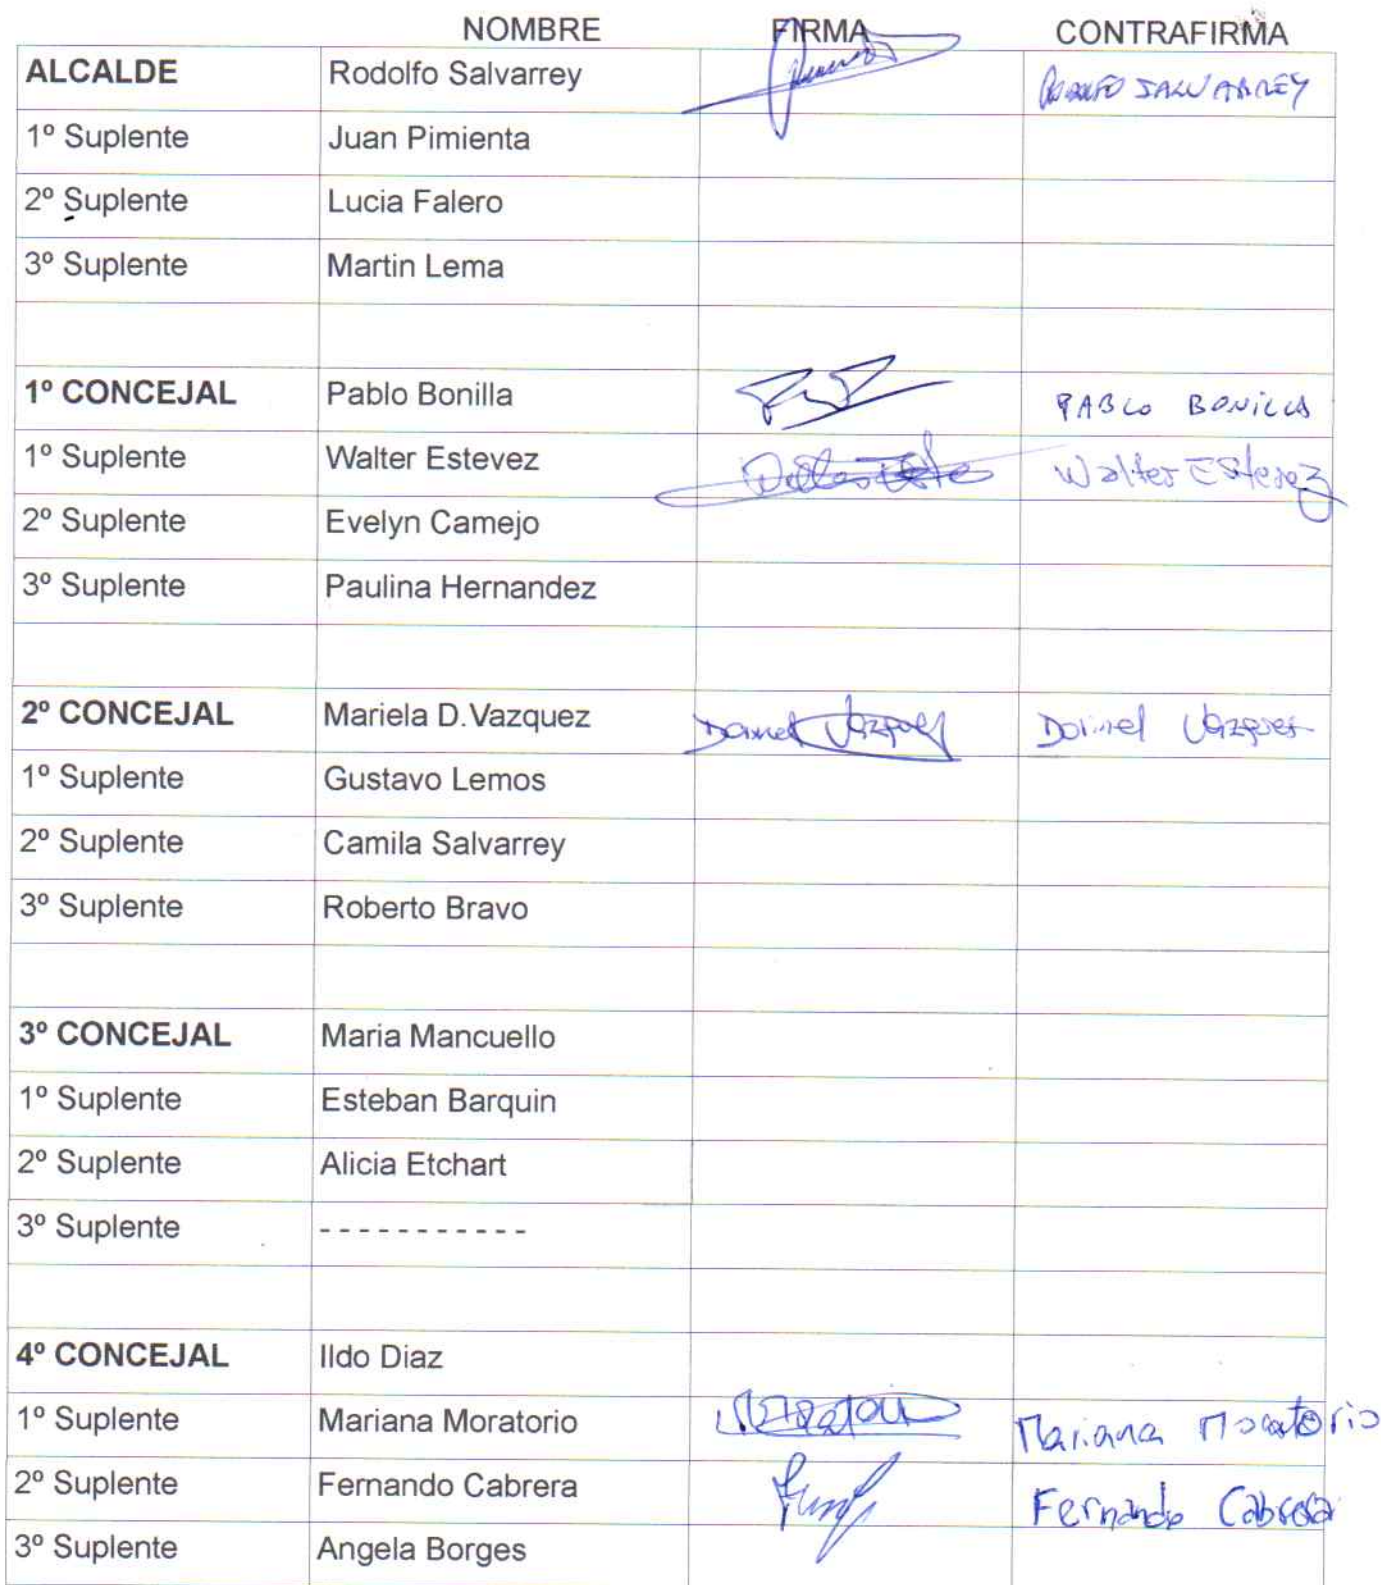 NOMBRE FIRMA CONTRAFIRMA
ALCALDE Rodolfo Salvarrey RODOLFO SALVARREY
1º Suplente Juan Pimienta
2º Suplente Lucia Falero
3º Suplente Martin Lema
1º CONCEJAL Pablo Bonilla PABLO BONILLA
1º Suplente Walter Estevez Walter Estevez
2º Suplente Evelyn Camejo
3º Suplente Paulina Hernandez
2º CONCEJAL Mariela D.Vazquez Vazquez
1º Suplente Gustavo Lemos
2º Suplente Camila Salvarrey
3º Suplente Roberto Bravo
3º CONCEJAL Maria Mancuello
1º Suplente Esteban Barquin
2º Suplente Alicia Etchart
3º Suplente - - - - - - - - - - -
4º CONCEJAL Ildo Diaz
1º Suplente Mariana Moratorio Mariana Moratorio
2º Suplente Fernando Cabrera Fernando Cabrera
3º Suplente Angela Borges